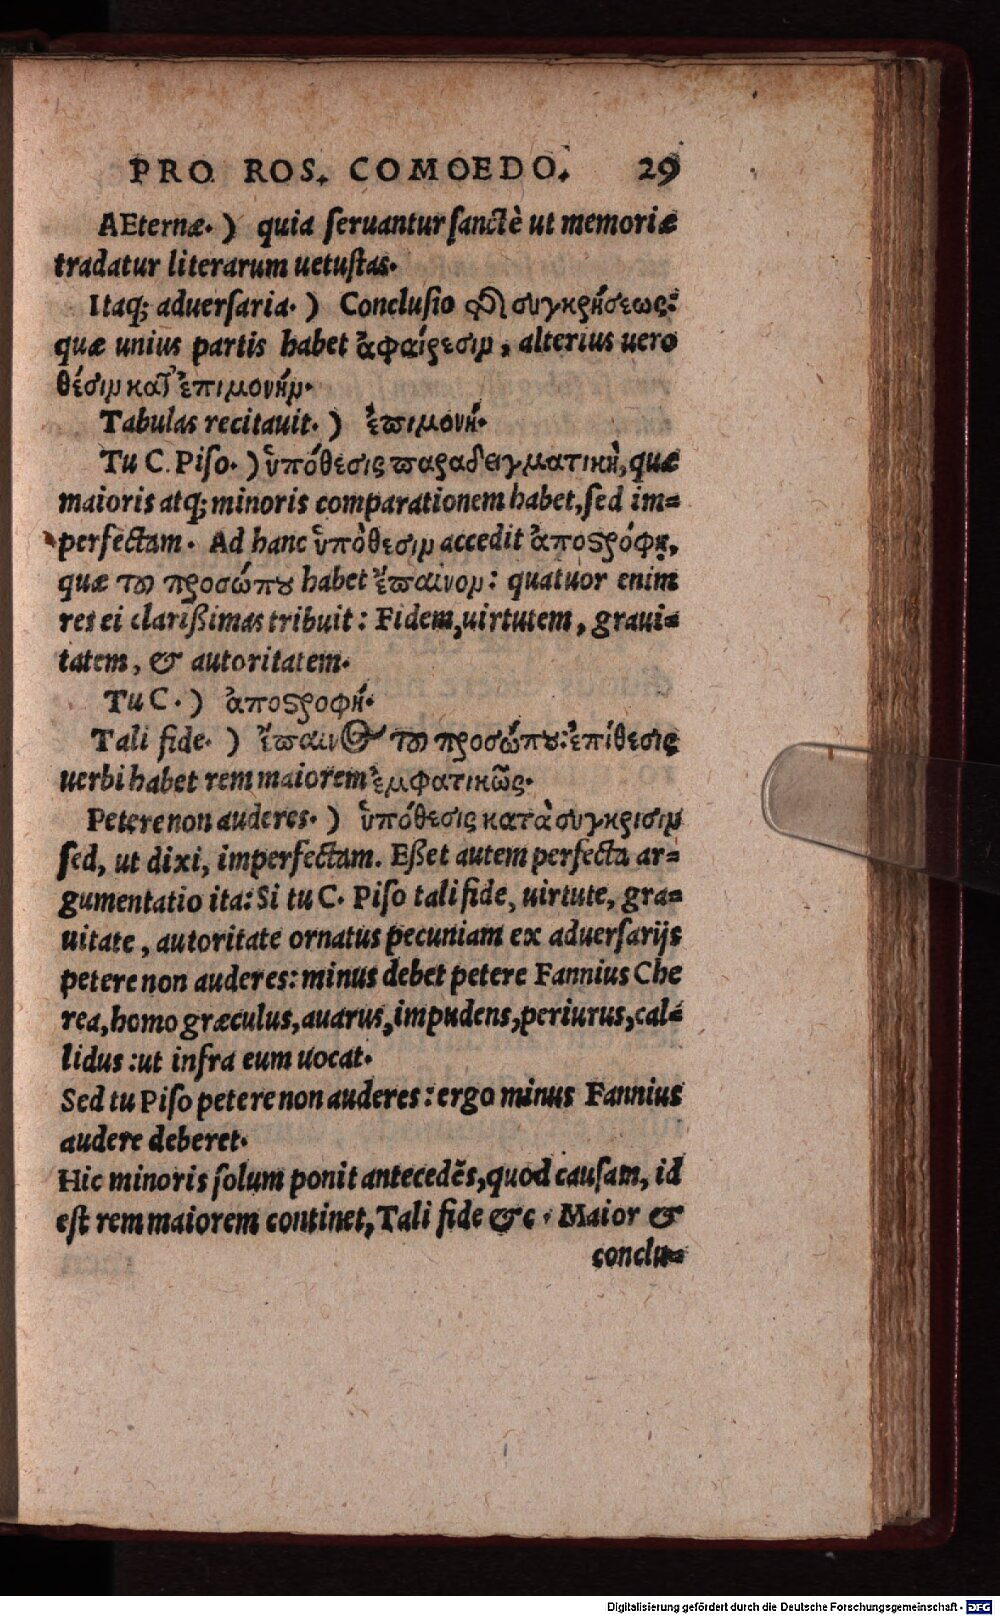 PRO ROS. COMOEDO. 29
AEternæ. ) quia ſeruantur ſanctè ut memoriæ
tradatur literarum uetuſtas.
Itaq; aduerſaria. ) Concluſio συγκρήσεως:
quæ unius partis habet ἀφαίρεσιμ, alterius uero
θέσιμ καὶ ἐπιμονήμ.
Tabulas recitauit. ) ἐπιμονή.
Tu C. Piſo. ) ὑπόθεσις παραδειγματικὴ, quæ
maioris atq; minoris comparationem habet, ſed im=
perfectam. Ad hanc ὑπόθεσιμ accedit ἀποςρόφη,
quæ τῦ προσώπȣ habet ἔπαινομ: quatuor enim
res ei clarißimas tribuit: Fidem, uirtutem, graui=
tatem, & autoritatem.
Tu C. ) ἀποςροφή.
Tali fide. ) ἔπαινος τῦ προσώπȣ: ἐπίθεσις
uerbi habet rem maiorem ἐμφατικῶς.
Petere non auderes. ) ὑπόθεσις κατὰ σύγκρισιμ
ſed, ut dixi, imperfectam. Eßet autem perfecta ar=
gumentatio ita: Si tu C. Piſo tali fide, uirtute, gra=
uitate, autoritate ornatus pecuniam ex aduerſarijs
petere non auderes: minus debet petere Fannius Che
rea, homo græculus, auarus, impudens, periurus, cal=
lidus: ut infra eum uocat.
Sed tu Piſo petere non auderes: ergo minus Fannius
audere deberet.
Hic minoris ſolum ponit antecedẽs, quod cauſam, id
eſt rem maiorem continet, Tali fide &c. Maior &
conclu=
Digitalisierung gefördert durch die Deutsche Forschungsgemeinschaft - DFG